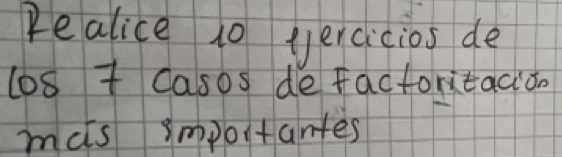 Realice 10 ejercicios de
los 7 casos de Factoritación
más importantes